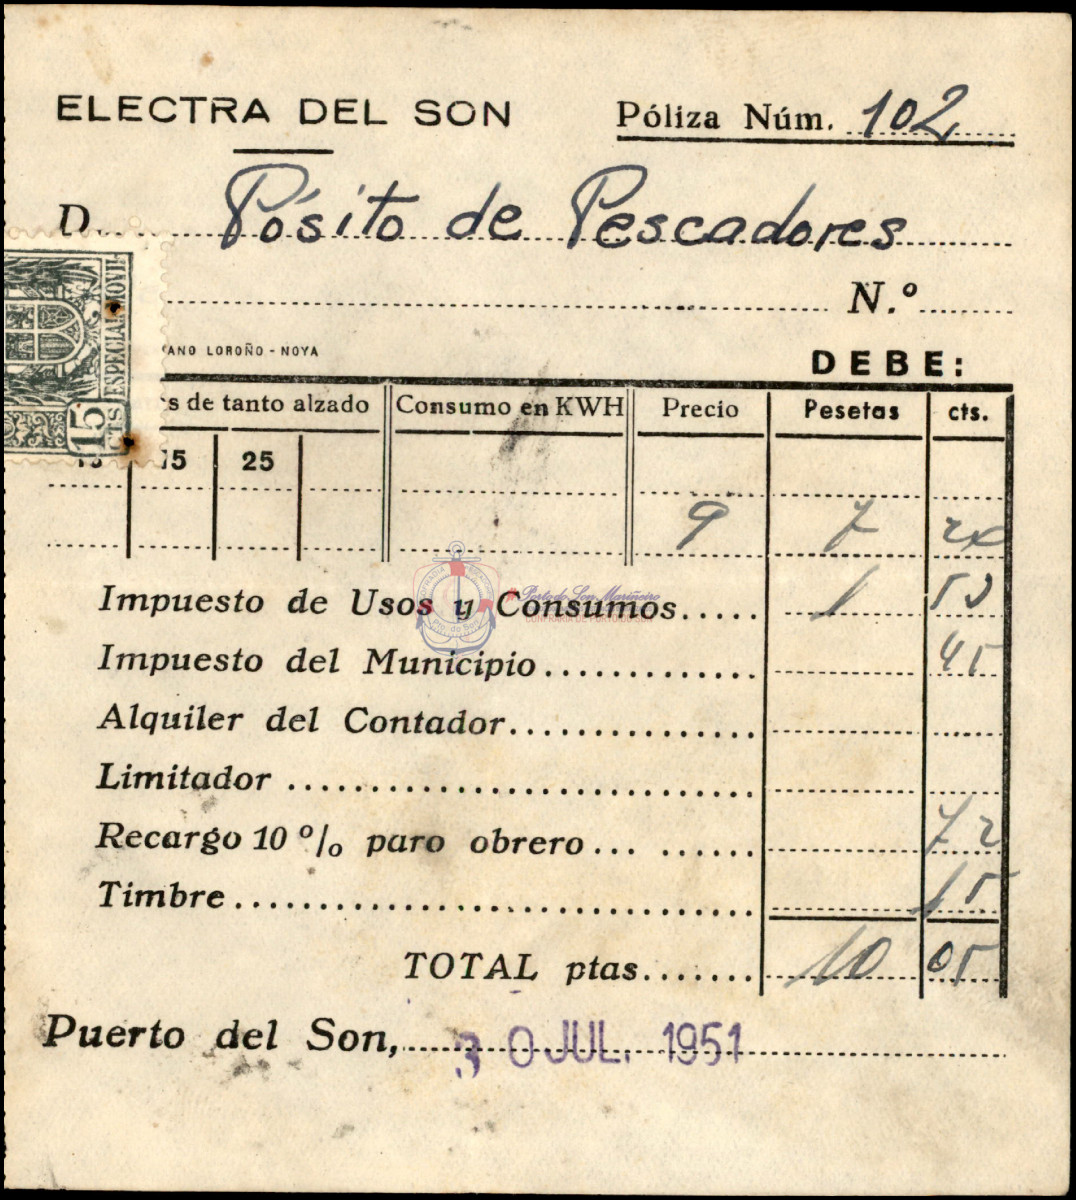 ELECTRA DEL SON
Póliza Núm. 102
D. Pósito de Pescadores
N.º
ANO LOROÑO - NOYA
DEBE:
ESPECIAL MOVIL
15 CTS
s de tanto alzado Consumo en KWH Precio Pesetas cts.
15 25
9 7 20
Impuesto de Usos y Consumos..... 1 53
Impuesto del Municipio............. 45
Alquiler del Contador...............
Limitador .............................
Recargo 10 % paro obrero... ...... 72
Timbre............................... 15
TOTAL ptas....... 10 05
Puerto del Son, 30 JUL. 1951
Porto do Son Mariñeiro
CONFRARÍA DE PORTO DO SON